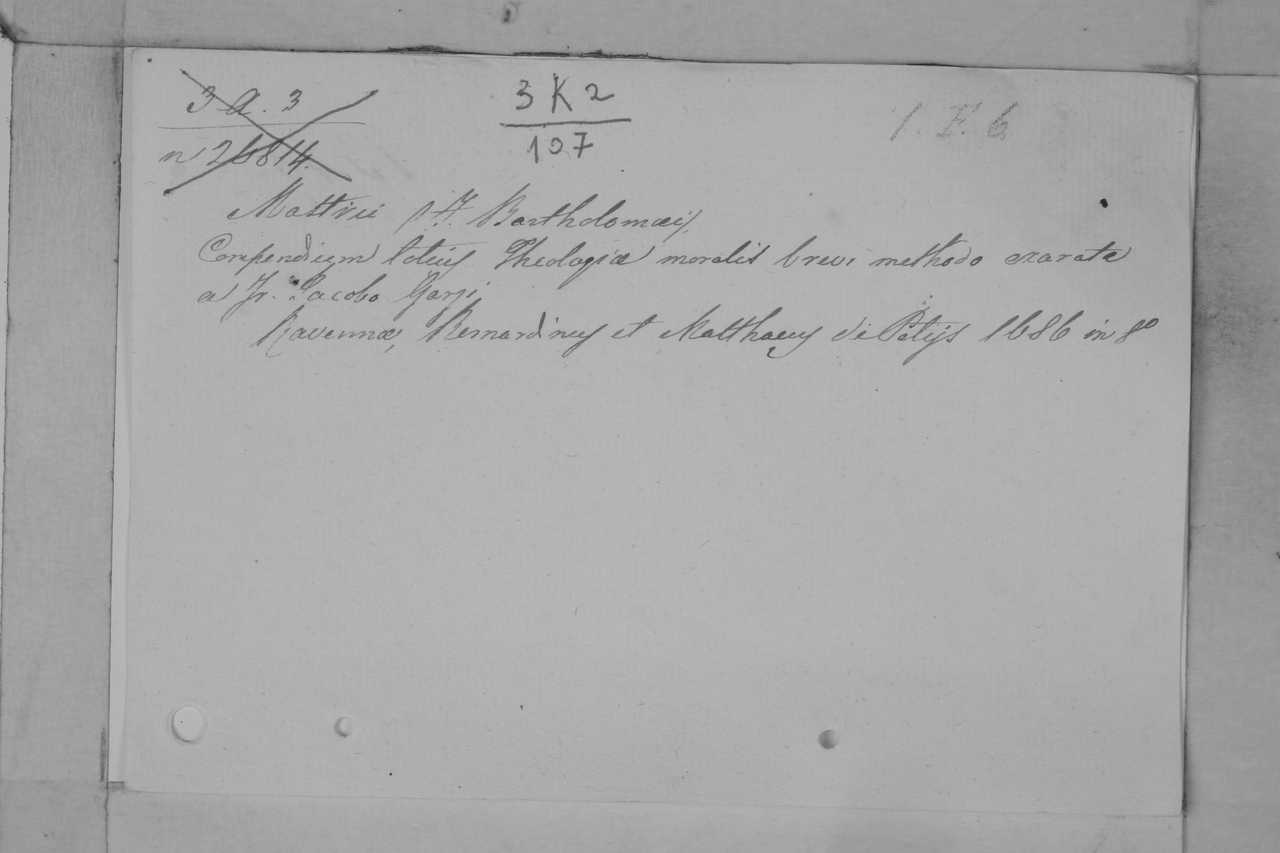 3 a. 3
n 26814.
3 K 2
107
1. F. 6
Mastrii Bartholomæi,
Compendium totius Theologiæ moralis brevi methodo exarata
a Fr. Jacobo Garzi
Ravennæ, Bernardinus et Matthaeus de Petijs 1686 in 8°